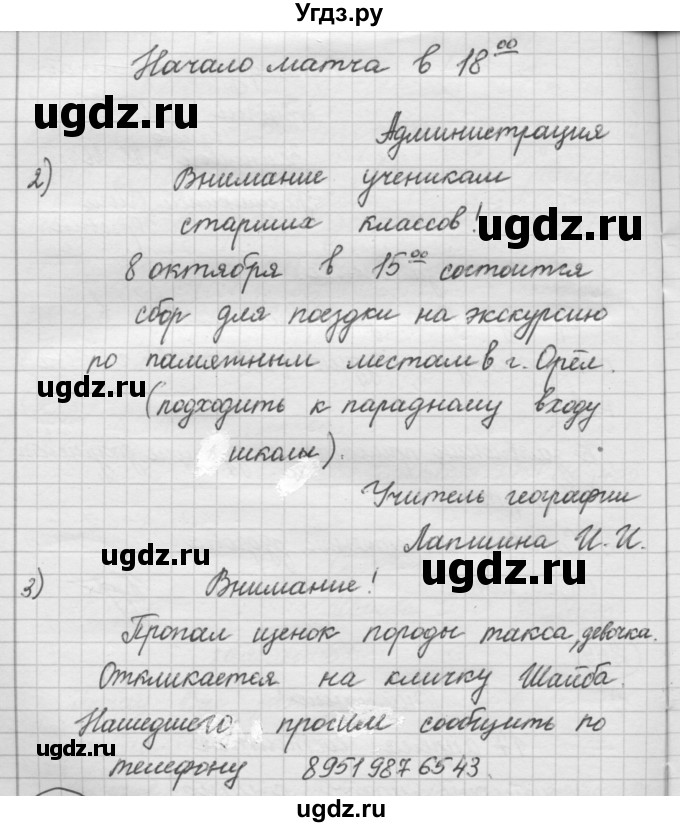 Угдз.ру
Начало матча в 18⁰⁰
ugdz.ru
Администрация
2) Внимание ученикам
старших классов!
ugdz.ru
8 октября в 15⁰⁰ состоится
сбор для поездки на экскурсию
по памятным местам в г. Орёл.
ugdz.ru
(подходить к парадному входу
школы).
Учитель географии
Лапшина И. И.
ugdz.ru
ugdz.ru
3) Внимание!
Пропал щенок породы такса, девочка.
Откликается на кличку Шайба.
Нашедшего просим сообщить по
ugdz.ru
телефону 89519876543.
ugdz.ru